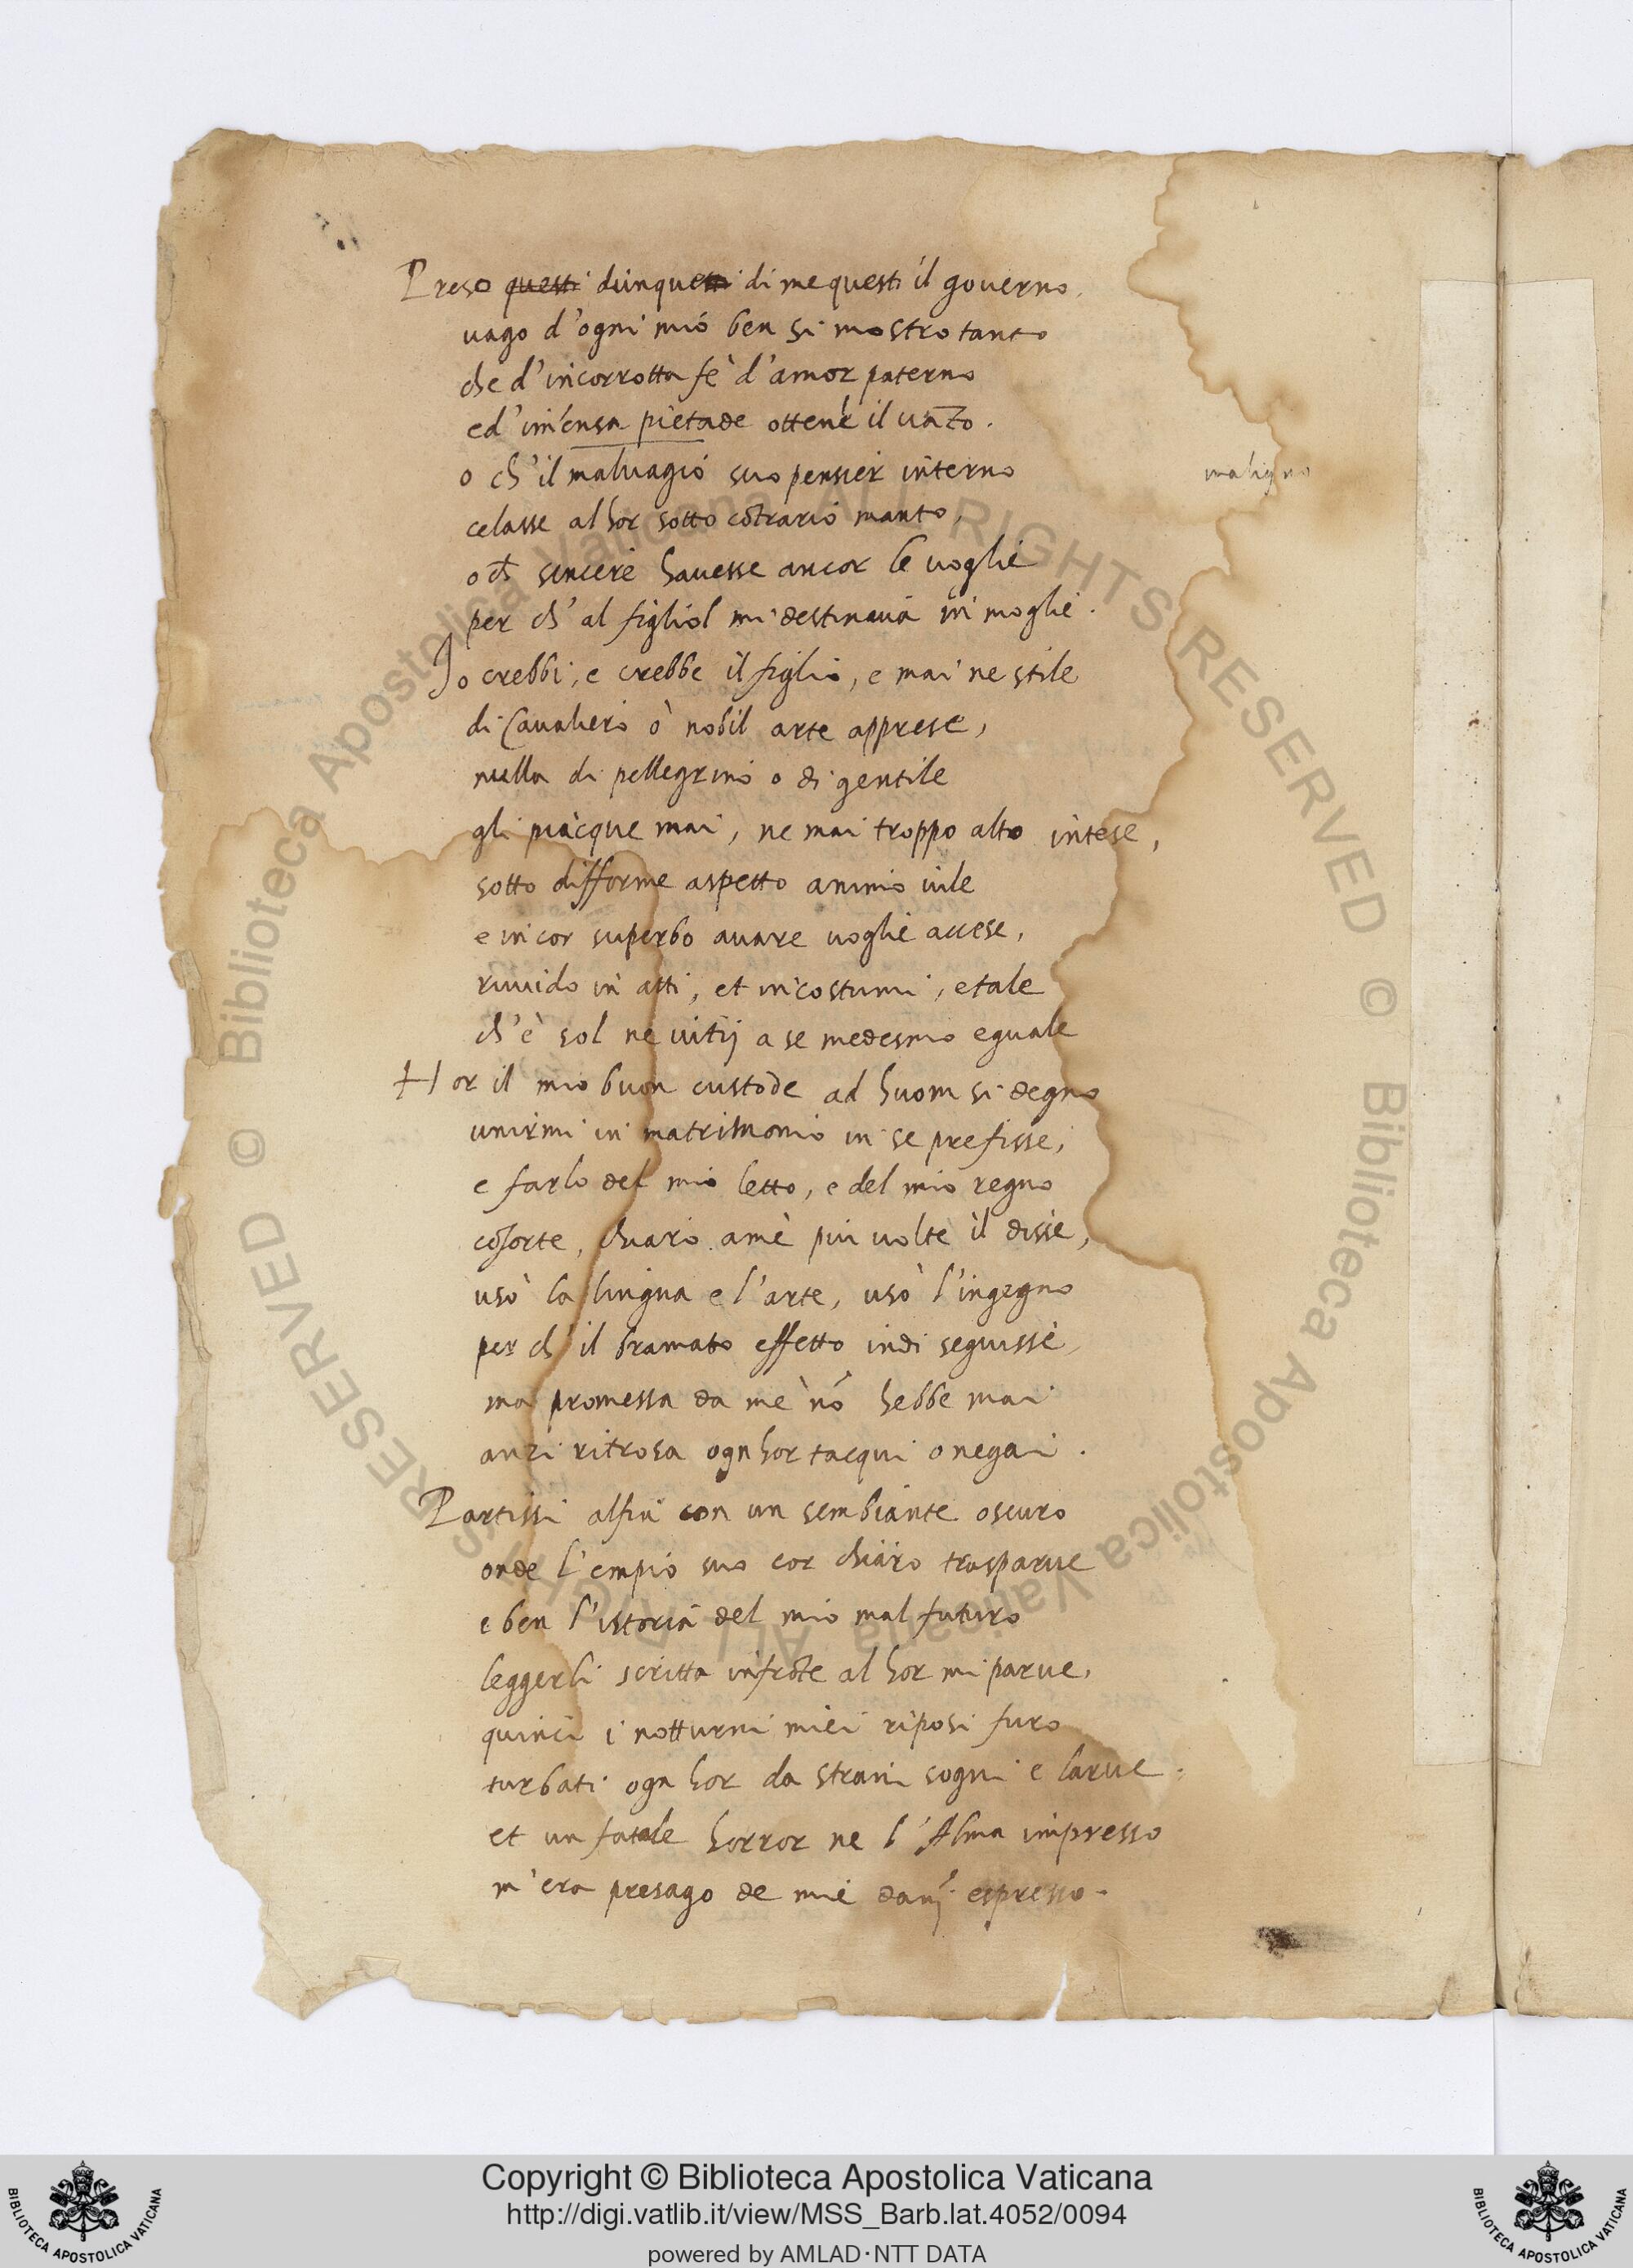 Preso questi dunque di me questi il gouerno,
uago d'ogni mio ben si mostro tanto
che d'incorrotta fè d'amor paterno
ed'im̃ensa pietade ottene il uãto.
o ch'il maluagio suo pensier interno
maligno
celasse alhor sotto cõtrario manto,
o ch̃ sincere hauesse ancor le uoglie
per ch'al figliol mi destinaua in moglie.
Io crebbi, e crebbe il figlio, e mai ne stile
di Caualiero ò nobil arte apprese,
nulla di pellegrino o di gentile
gli piacque mai, ne mai troppo alto intese,
sotto difforme aspetto animo uile
e in cor superbo auare uoglie accese,
ruuido in atti, et in costumi, e tale
ch'è sol ne uitij a se medesmo eguale
Hor il mio buon custode ad huom si degno
unirmi in matrimonio in se prefisse,
e farlo del mio letto, e del mio regno
cõsorte, chiaro a me piu uolte il disse,
usò la lingua e l'arte, usò l'ingegno
per ch'il bramato effetto indi seguisse,
ma promessa da me nõ hebbe mai
anzi ritrosa ogn hor tacqui o negai.
Partissi alfin con un sembiante oscuro
onde l'empio suo cor chiaro trasparue
e ben l'istoria del mio mal futuro
leggerli scritta in frõte al hor mi parue,
quinci i notturni miei riposi furo
turbati ogn hor da strani sogni e larue,
et un fatale horror ne l'Alma impresso
m'era presago de miei danĩ espresso.
Copyright © Biblioteca Apostolica Vaticana
http://digi.vatlib.it/view/MSS_Barb.lat.4052/0094
powered by AMLAD·NTT DATA
BIBLIOTECA APOSTOLICA VATICANA
BIBLIOTECA APOSTOLICA VATICANA
© Biblioteca Apostolica Vaticana ALL RIGHTS RESERVED
© Biblioteca Apostolica Vaticana ALL RIGHTS RESERVED